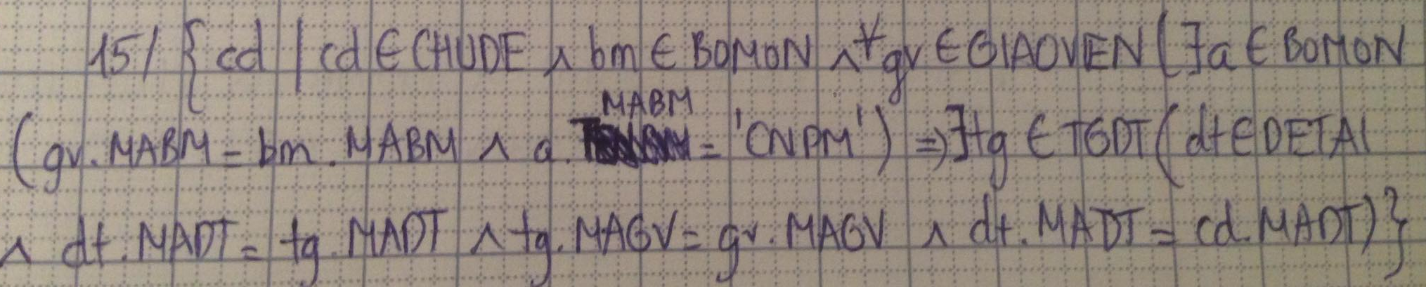 15/ { cd / cd ∈ CHUDE ∧ bm ∈ BOMON ∧ ∀gv ∈ GIAOVIEN ( ∃a ∈ BOMON
(gv.MABM = bm.MABM ∧ a.MABM = 'CNPM') ⇒ ∃tg ∈ TGDT (dt ∈ DETAI
∧ dt.MADT = tg.MADT ∧ tg.MAGV = gv.MAGV ∧ dt.MADT = cd.MADT)}